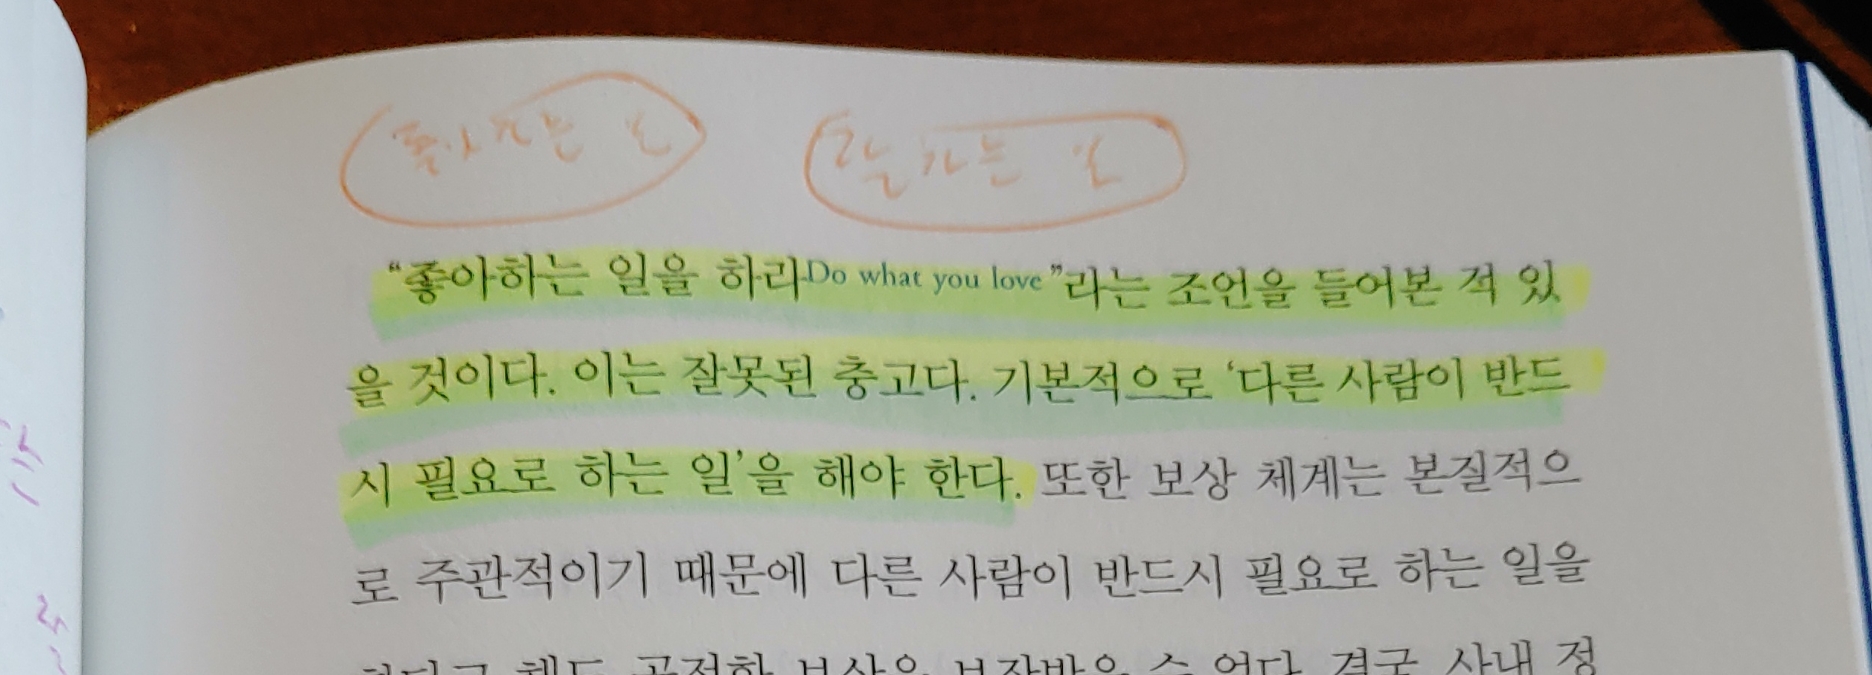 좋아하는 일 잘하는 일
“좋아하는 일을 하라Do what you love”라는 조언을 들어본 적 있
을 것이다. 이는 잘못된 충고다. 기본적으로 ‘다른 사람이 반드
시 필요로 하는 일’을 해야 한다. 또한 보상 체계는 본질적으
로 주관적이기 때문에 다른 사람이 반드시 필요로 하는 일을
한다고 해도 공정한 보상을 보장받을 수 없다. 결국 사내 정